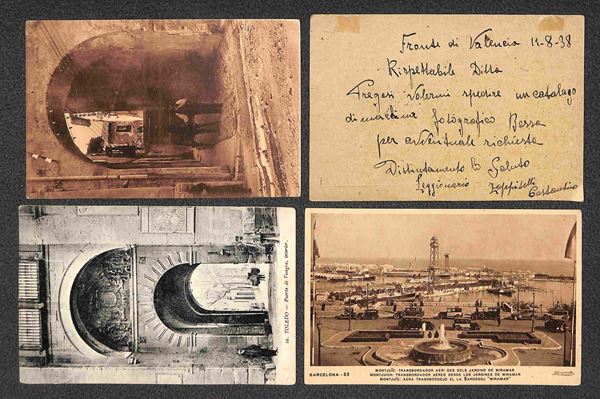 Fronte di Valencia 11-8-38
Rispettabile Ditta
Pregasi volermi spedire un catalago
di macchina fotografica Bessa
per avventuale richiesta
Distintamente La Saluto
Leggionario Zoppitelli
Costantino
16 TOLEDO — Puerta de Visagra, interior.
MONTJUÏC: TRANSBORDADOR AERI DES DELS JARDINS DE MIRAMAR
BARCELONA - 53 MONTJUICH: TRANSBORDADOR AÉREO DESDE LOS JARDINES DE MIRAMAR
MONTJUIC: AERA TRANSBORDEJO EL LA ĜARDENOJ "MIRAMAR"